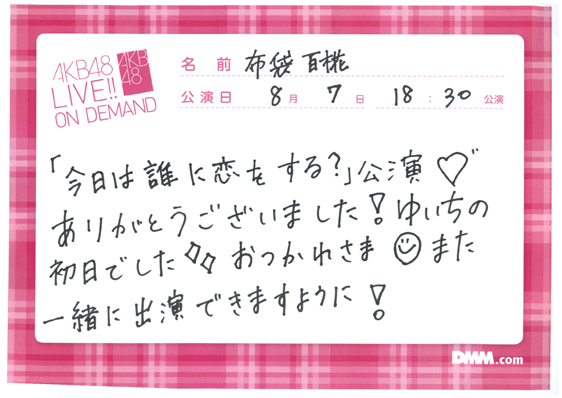 AKB48
LIVE!!
ON DEMAND
AKB
48
名 前 布袋 百椛
公演日 8月 7日 18:30 公演
「今日は誰に恋をする?」公演♡
ありがとうございました!ゆいちの
初日でした おつかれさま☺また
一緒に出演できますように!
DMM.com